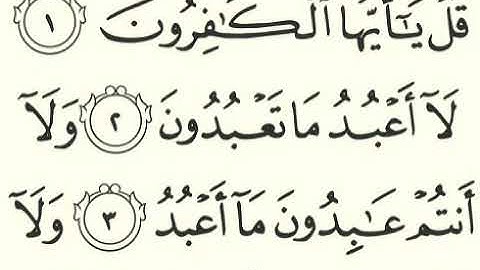 قُلْ يَـٰٓأَيُّهَا ٱلْكَـٰفِرُونَ ١
لَآ أَعْبُدُ مَا تَعْبُدُونَ ٢ وَلَآ
أَنتُمْ عَـٰبِدُونَ مَآ أَعْبُدُ ٣ وَلَآ